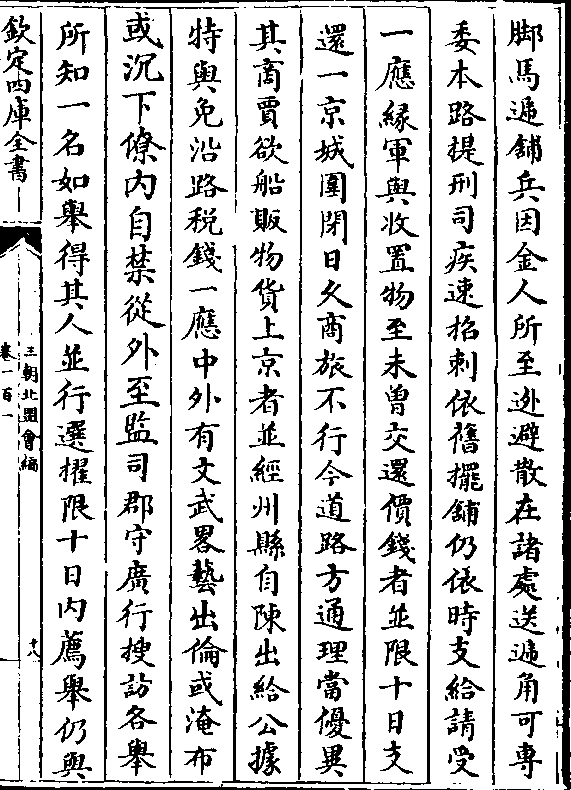 脚馬遞鋪兵因金人所至迯避散在諸處送遞角可專
委本路提刑司疾速招刺依舊擺鋪仍依時支給請受
一應緣軍興收置物至未曾交還價錢者並限十日支
還一京城圍閉日久商旅不行今道路方通理當優異
其商賈欲船販物貨上京者並經州縣自陳出給公據
特與免沿路税錢一應中外有文武畧藝出倫或淹布
或沉下僚内自禁從外至監司郡守廣行搜訪各舉
所知一名如舉得其人並行選擢限十日内薦舉仍與
欽定四庫全書
三朝北盟會編
卷一百一
十八